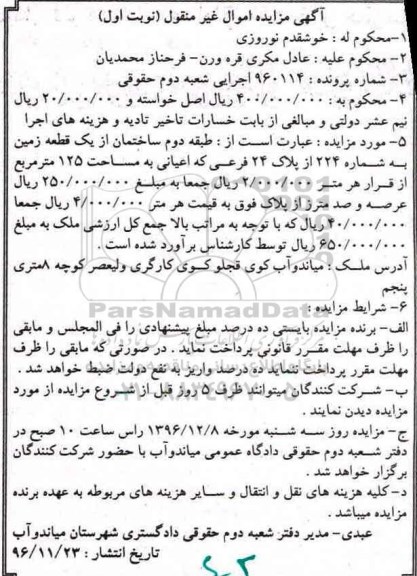 آگهی مزایده اموال غیر منقول (نوبت اول)
۱-محکوم له : خوشقدم نوروزی
۲- محکوم علیه : عادل مکری قره ورن- فرحناز محمدیان
۳- شماره پرونده : ۹۶۰۱۱۴ اجرایی شعبه دوم حقوقی
۴- محکوم به : ۴۰۰/۰۰۰/۰۰۰ ریال اصل خواسته و ۲۰/۰۰۰/۰۰۰ ریال
نیم عشر دولتی و مبالغی از بابت خسارات تاخیر تادیه و هزینه های اجرا
۵- مورد مزایده : عبارت است از : طبقه دوم ساختمان از یک قطعه زمین
به شماره ۲۲۴ از پلاک ۲۴ فرعی که اعیانی به مساحت ۱۲۵ مترمربع
از قرار هر متر ۲/۰۰۰/۰۰۰ ریال جمعا به مبلغ ۲۵۰/۰۰۰/۰۰۰ ریال
عرصه و صد متر از پلاک فوق به قیمت هر متر ۴/۰۰۰/۰۰۰ ریال جمعا
۴۰۰/۰۰۰/۰۰۰ ریال که با توجه به مراتب بالا جمع کل ارزشی ملک به مبلغ
۶۵۰/۰۰۰/۰۰۰ ریال توسط کارشناس برآورد شده است .
آدرس ملک : میاندوآب کوی قجلو کوی کارگری ولیعصر کوچه ۸متری
پنجم
۶- شرایط مزایده :
الف- برنده مزایده بایستی ده درصد مبلغ پیشنهادی را فی المجلس و مابقی
را ظرف مهلت مقرر قانونی پرداخت نماید . در صورتی که مابقی را ظرف
مهلت مقرر پرداخت ننماید ده درصد واریز به نفع دولت ضبط خواهد شد .
ب- شرکت کنندگان میتوانند ظرف ۵ روز قبل از شروع مزایده از مورد
مزایده دیدن نمایند .
ج- مزایده روز سه شنبه مورخه ۱۳۹۶/۱۲/۸ راس ساعت ۱۰ صبح در
دفتر شعبه دوم حقوقی دادگاه عمومی میاندوآب با حضور شرکت کنندگان
برگزار خواهد شد .
د- کلیه هزینه های نقل و انتقال و سایر هزینه های مربوطه به عهده برنده
مزایده میباشد .
عبدی- مدیر دفتر شعبه دوم حقوقی دادگستری شهرستان میاندوآب
تاریخ انتشار : ۹۶/۱۱/۲۳
ParsNamadData